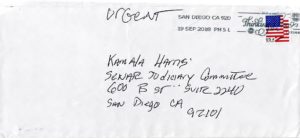 Urgent
SAN DIEGO CA 920
19 SEP 2018 PM 5 L
Kamala Harris
Senate Judiciary Committee
600 B St Suite 2240
San Diego CA
92101